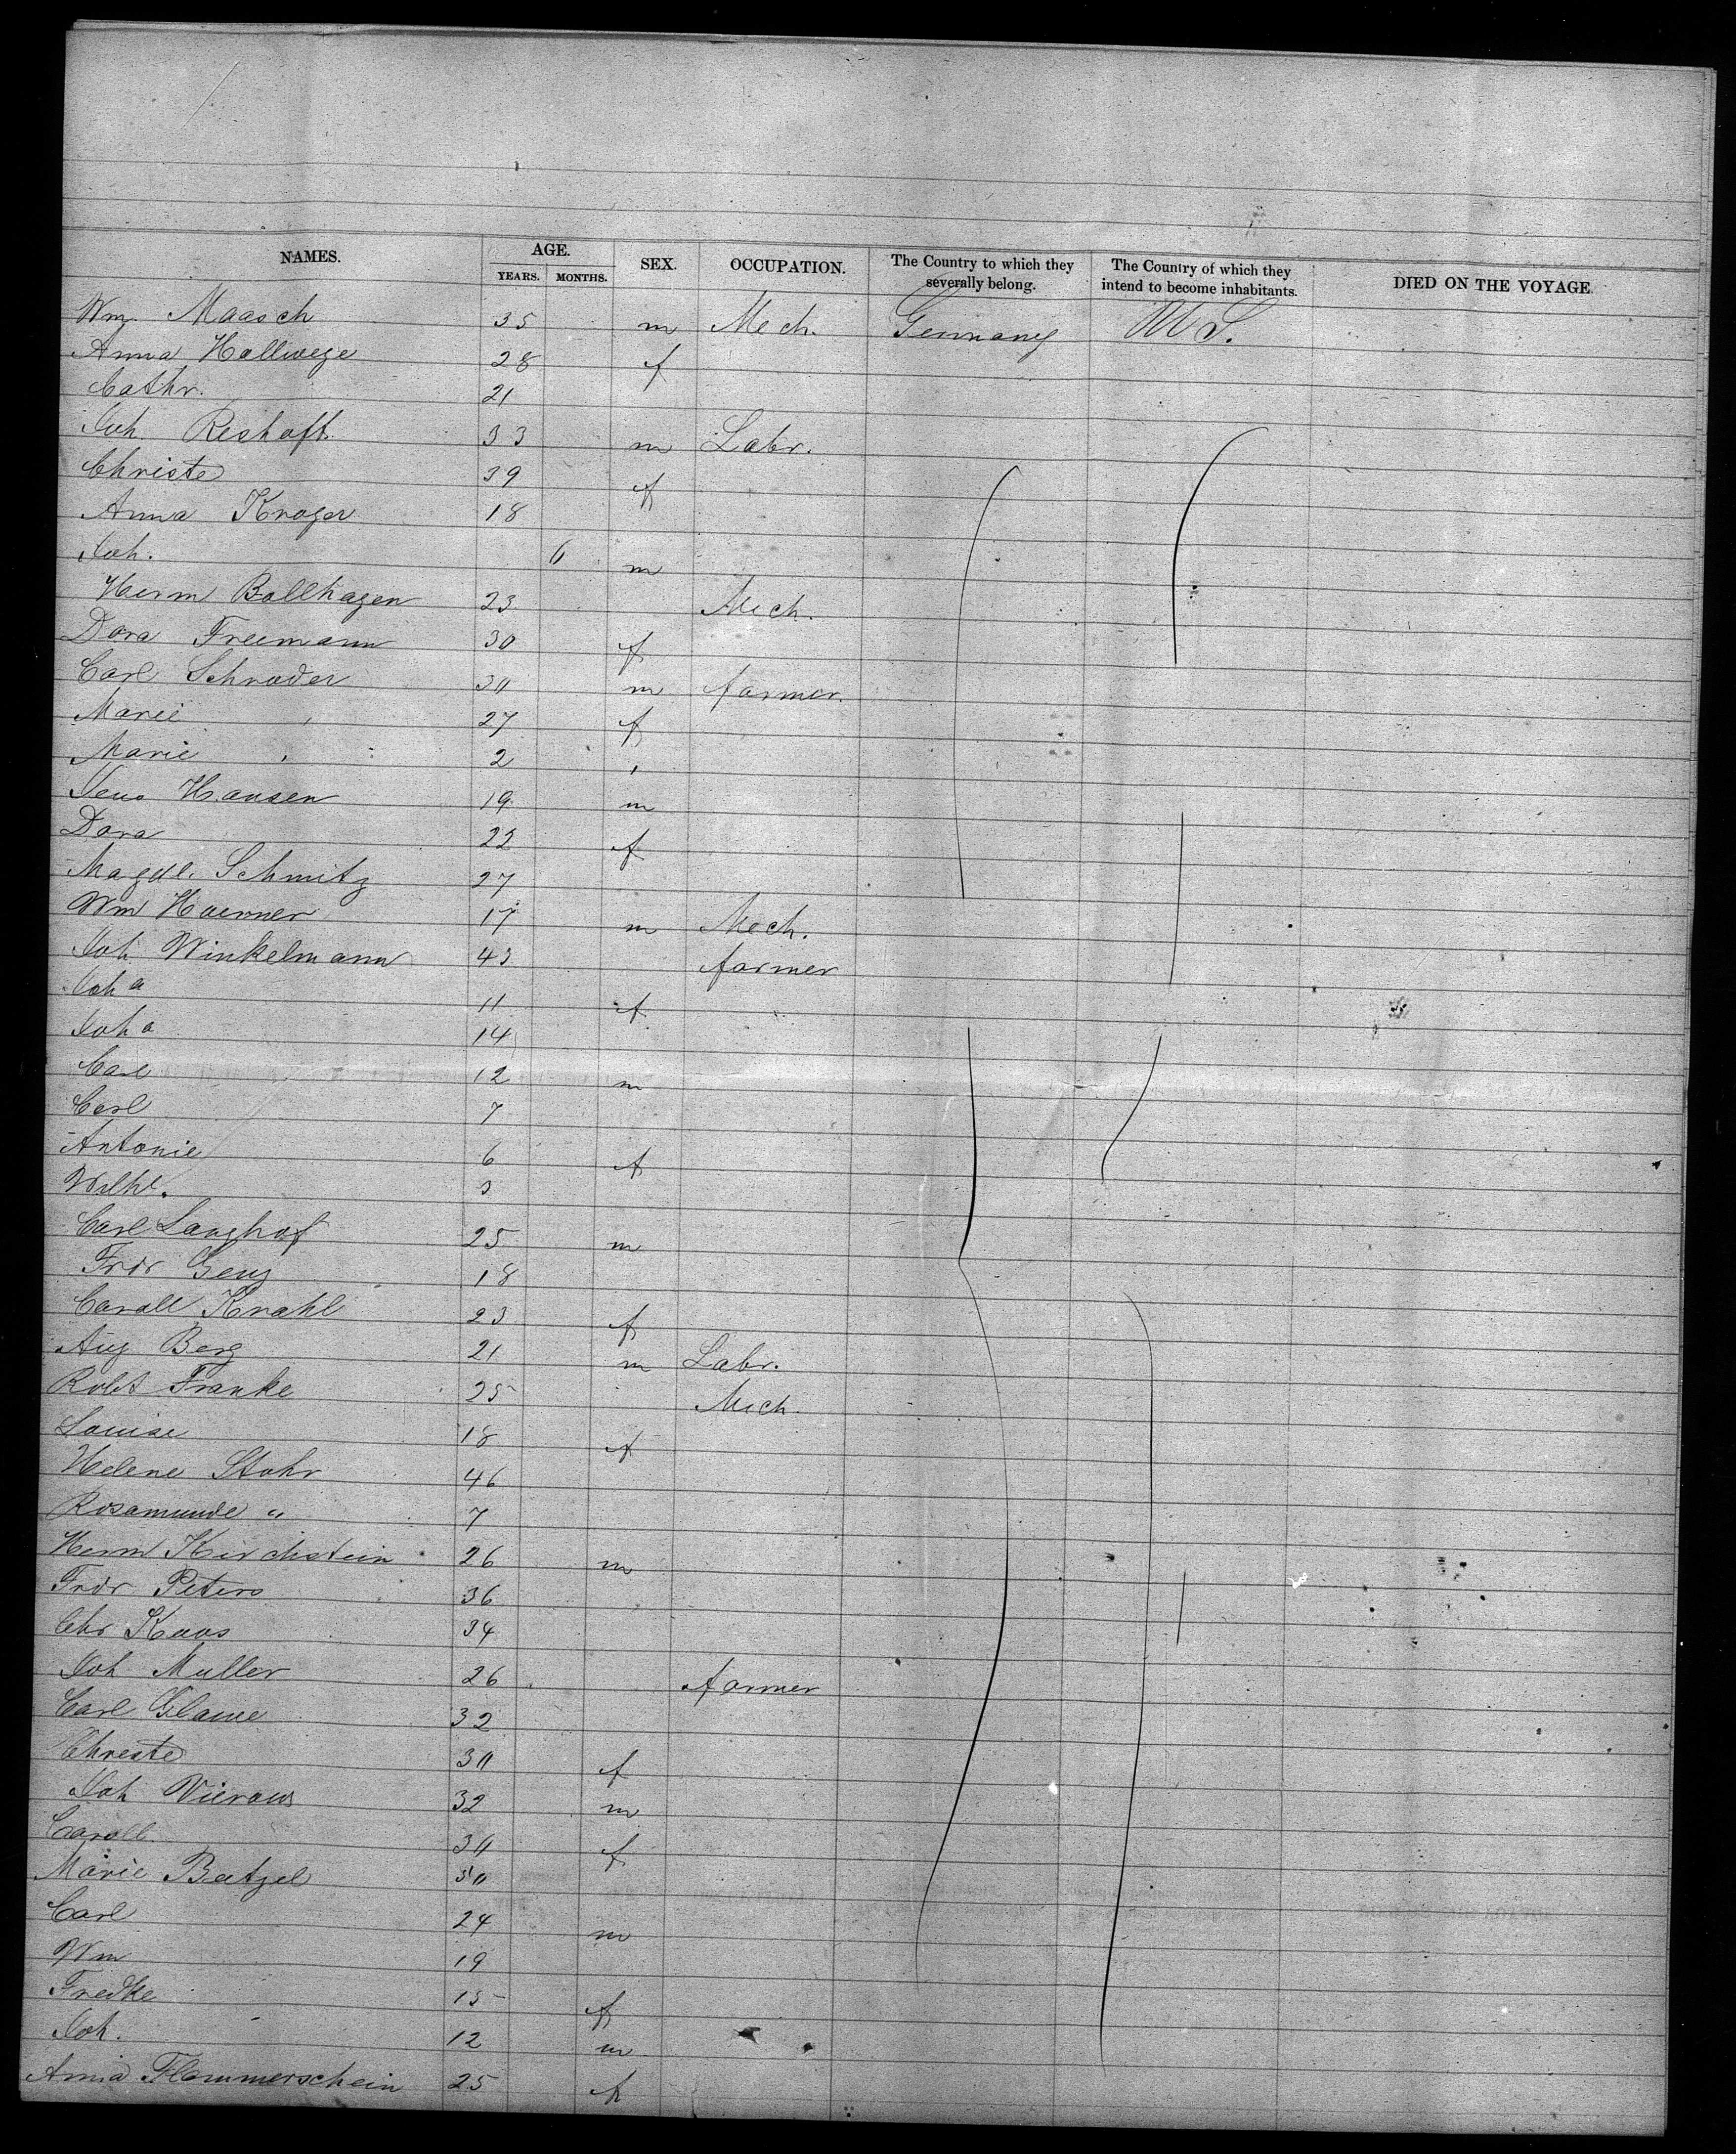 NAMES. AGE. SEX. OCCUPATION. The Country to which they severally belong. The Country of which they intend to become inhabitants. DIED ON THE VOYAGE.
YEARS. MONTHS.
Wm. Maasch 35 m Mech. Germany U S.
Anna Hollwege 28 f
Cathr. 21
Joh. Reshoft 33 m Labr.
Christe 39 f
Anna Kroger 18
Joh. 6 m
Herm Bollhagen 23 Mech.
Dora Freemann 30 f
Carl Schroder 30 m farmer
Marie " 27 f
Marie " 2 "
Jens Hansen 19 m
Dora 22 f
Magdl. Schmitz 27
Wm Hoerner 17 m Mech.
Joh. Winkelmann 43 farmer
Joh a 11 f
Joh a 14
Carl 12 m
Carl 7
Antonie 6 f
Wilhl. 3
Carl Langhof 25 m
Frdr 18
Caroll Krahl 23 f
Aug Berg 21 m Labr.
Robt Franke 25 Mech.
Louise 18 f
Helene Stohr 46
Rosamunde " 7
Herm Kirchstein 26 m
Frdr Peters 36
Chr 34
Joh Muller 26 farmer
Carl Glawe 32
Christe 30 f
Joh Vierows 32 m
Caroll. 30 f
Marie Batzel 50
Carl 24 m
Wm 19
Fredke 15 f
Joh. 12 m
Anna Flommerschein 25 f